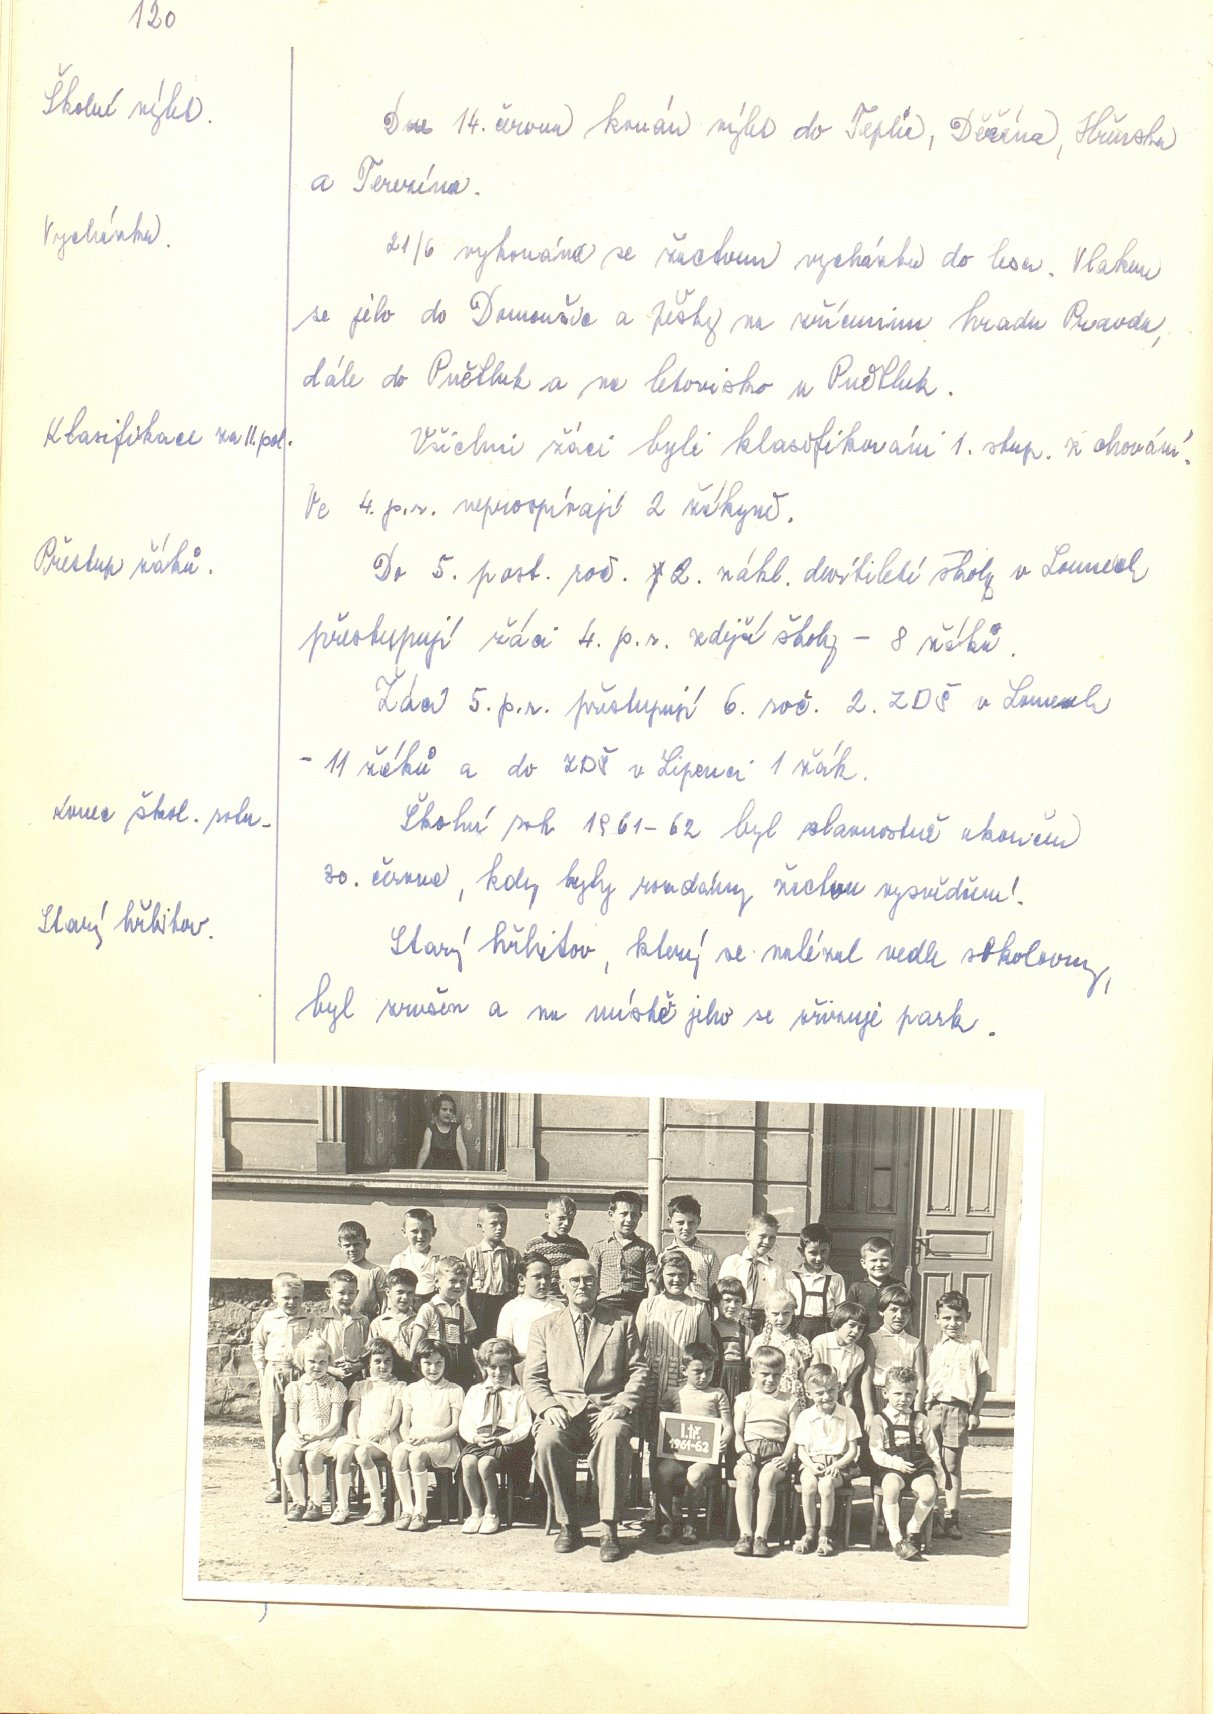 120
Školní výlet.
Dne 14. června konán výlet do Teplic, Děčína, Hřenska
a Terezína.
Vycházka.
21/6 vykonána se žactvem vycházka do lesa. Vlakem
se jelo do Domoušic a pěšky na zříceninu hradu Pravda,
dále do Pnětluk a na letovisko u Pnětluk.
Klasifikace za II. pol.
Všichni žáci byli klasifikováni 1. stup. z chování.
Ve 4. p. r. neprospívají 2 žákyně.
Přestup žáků.
Do 5. post. roč. 2. zákl. devítileté školy v Lounech
přestupují žáci 4. p. r. zdejší školy – 8 žáků.
Žáci 5. p. r. přestupují 6. roč. 2. ZDŠ v Lounech
– 11 žáků a do ZDŠ v Lipenci 1 žák.
Konec škol. roku –
Školní rok 1961–62 byl slavnostně ukončen
30. června, kdy byly rozdány žactvu vysvědčení.
Starý hřbitov.
Starý hřbitov, který se nalézal vedle sokolovny,
byl zrušen a na místě jeho se zřizuje park.
I. tř.
1961-62